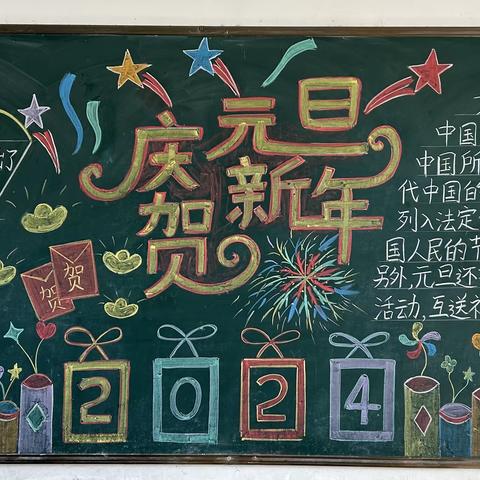 庆元旦
贺新年
贺
贺
2024
中国
中国所
代中国的
列入法定
国人民的节
另外,元旦还
活动,互送礼